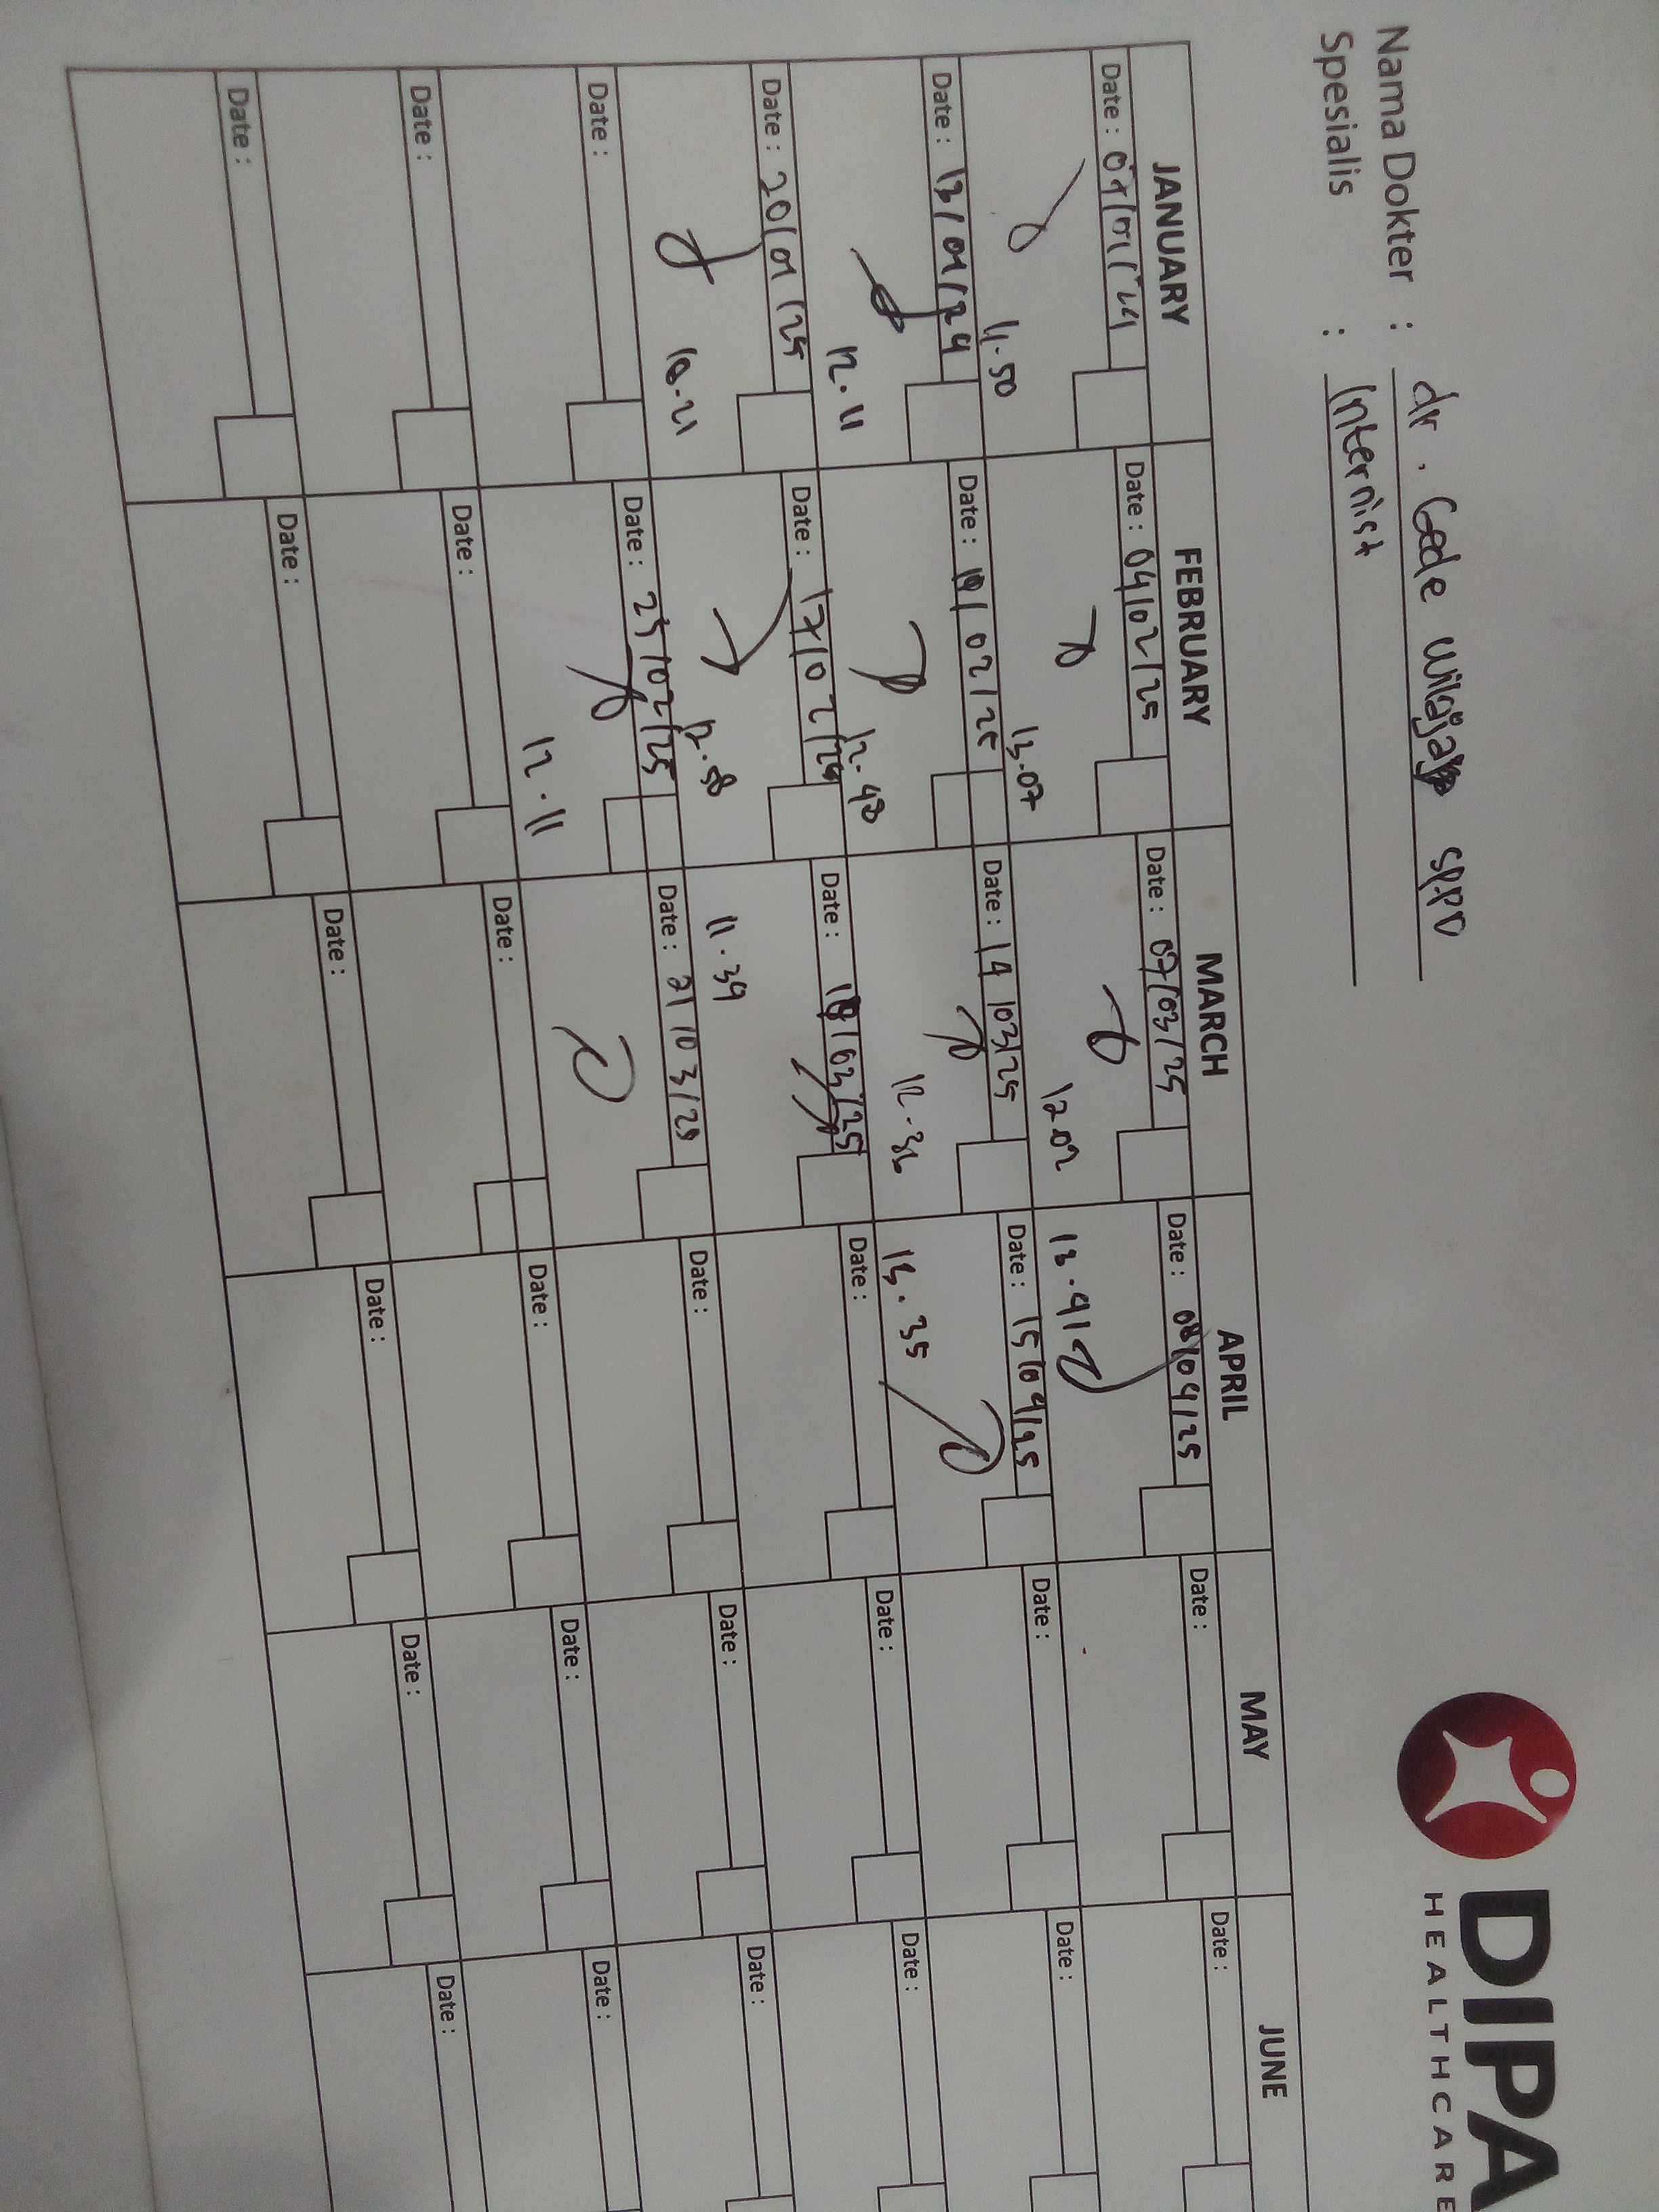 DIPA
HEALTHCARE
Nama Dokter : dr. Gede SpPD
Spesialis : Internist
JANUARY FEBRUARY MARCH APRIL MAY JUNE
Date : 07/01/24 Date : 04/02/25 Date : 07/03/25 Date : 08/04/25 Date : Date :
11.50 13.07 12.02 13.41
Date : 13/01/24 Date : 10/02/25 Date : 14/03/25 Date : 15/04/25 Date : Date :
12.11 12.48 12.36 13.35
Date : 20/01/25 Date : 17/02/25 Date : 18/03/25 Date : Date : Date :
10.21 12.58 11.39
Date : Date : 25/02/25 Date : 21/03/25 Date : Date : Date :
12.11
Date : Date : Date : Date : Date : Date :
Date : Date : Date : Date : Date : Date :